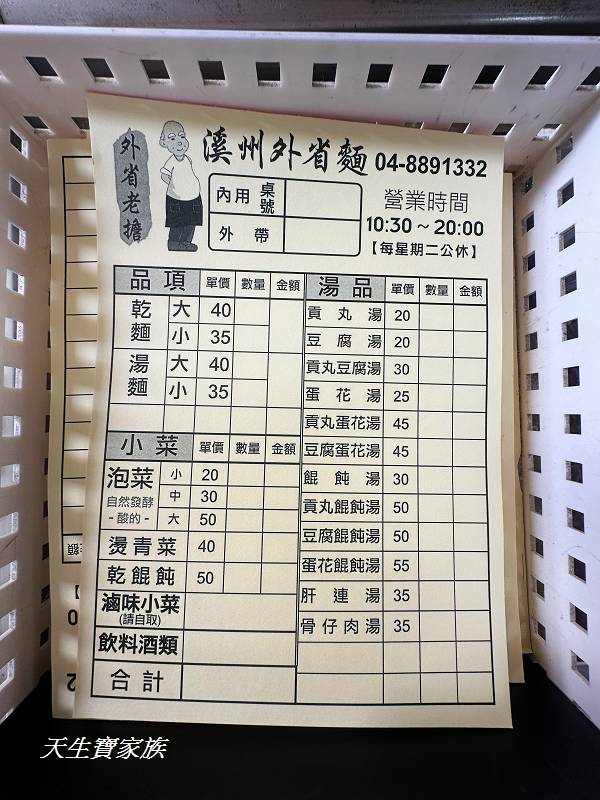 外省老擔
溪州外省麵 04-8891332
內用 桌號
外帶
營業時間
10:30～20:00
【每星期二公休】
品項 單價 數量 金額
乾麵 大 40
小 35
湯麵 大 40
小 35
小菜 單價 數量 金額
泡菜 小 20
自然發酵 中 30
-酸的- 大 50
燙青菜 40
乾餛飩 50
滷味小菜
(請自取)
飲料酒類
合計
湯品 單價 數量 金額
貢丸湯 20
豆腐湯 20
貢丸豆腐湯 30
蛋花湯 25
貢丸蛋花湯 45
豆腐蛋花湯 45
餛飩湯 30
貢丸餛飩湯 50
豆腐餛飩湯 50
蛋花餛飩湯 55
肝連湯 35
骨仔肉湯 35
天生寶家族